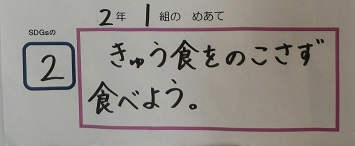 2年 1組の めあて
SDGsの
2
きゅう食をのこさず
食べよう。